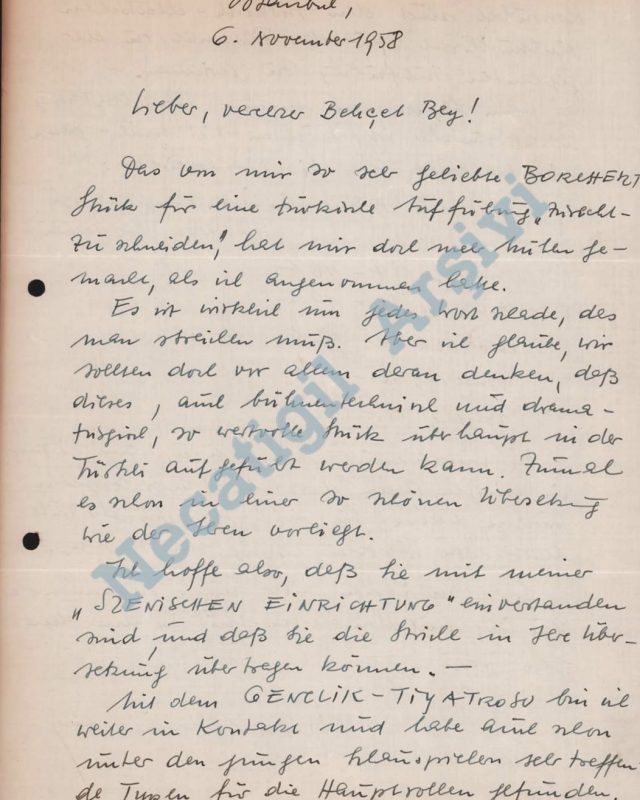 Istanbul,
6. November 1958
Lieber, verehrter Behçet Bey!
Das von mir so sehr geliebte BORCHERT
Stück für eine türkische Aufführung „zurecht-
zuschneiden", hat mir doch mehr Mühen ge-
macht, als ich angenommen hatte.
Es ist wirklich um jedes Wort schade, das
man streichen muß. Aber ich glaube, wir
sollten doch vor allem daran denken, daß
dieses, auch bühnentechnisch und drama-
turgisch, so wertvolle Stück überhaupt in der
Türkei aufgeführt werden kann. Zumal
es schon in einer so schönen Übersetzung
wie der Ihren vorliegt.
Ich hoffe also, daß Sie mit meiner
„SZENISCHEN EINRICHTUNG" einverstanden
sind, und daß Sie die Striche in Ihre Über-
setzung übertragen können. —
Mit dem GENCLIK-TIYATROSU bin ich
weiter in Kontakt und habe auch schon
unter den jungen Schauspielern sehr treffen-
de Typen für die Hauptrollen gefunden.
Necatigil Arşivi